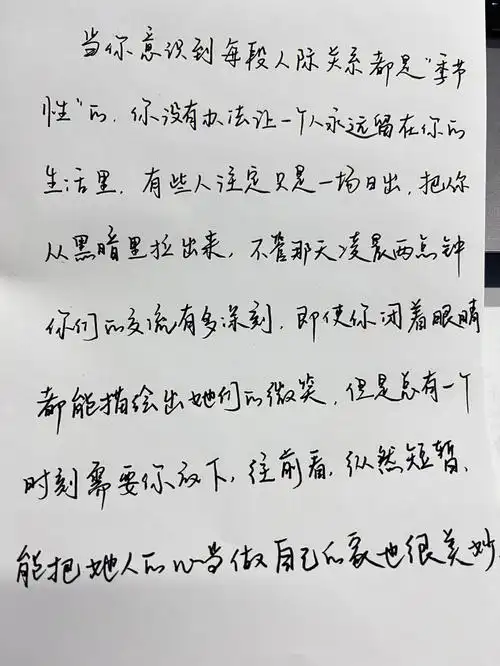 当你意识到每段人际关系都是“季节
性”的，你没有办法让一个人永远留在你的
生活里，有些人注定只是一场日出，把你
从黑暗里拉出来，不管那天凌晨两点钟
你们的交流有多深刻，即使你闭着眼睛
都能描绘出她们的微笑，但是总有一个
时刻需要你放下，往前看，纵然短暂，
能把她人的心当做自己的家也很美妙